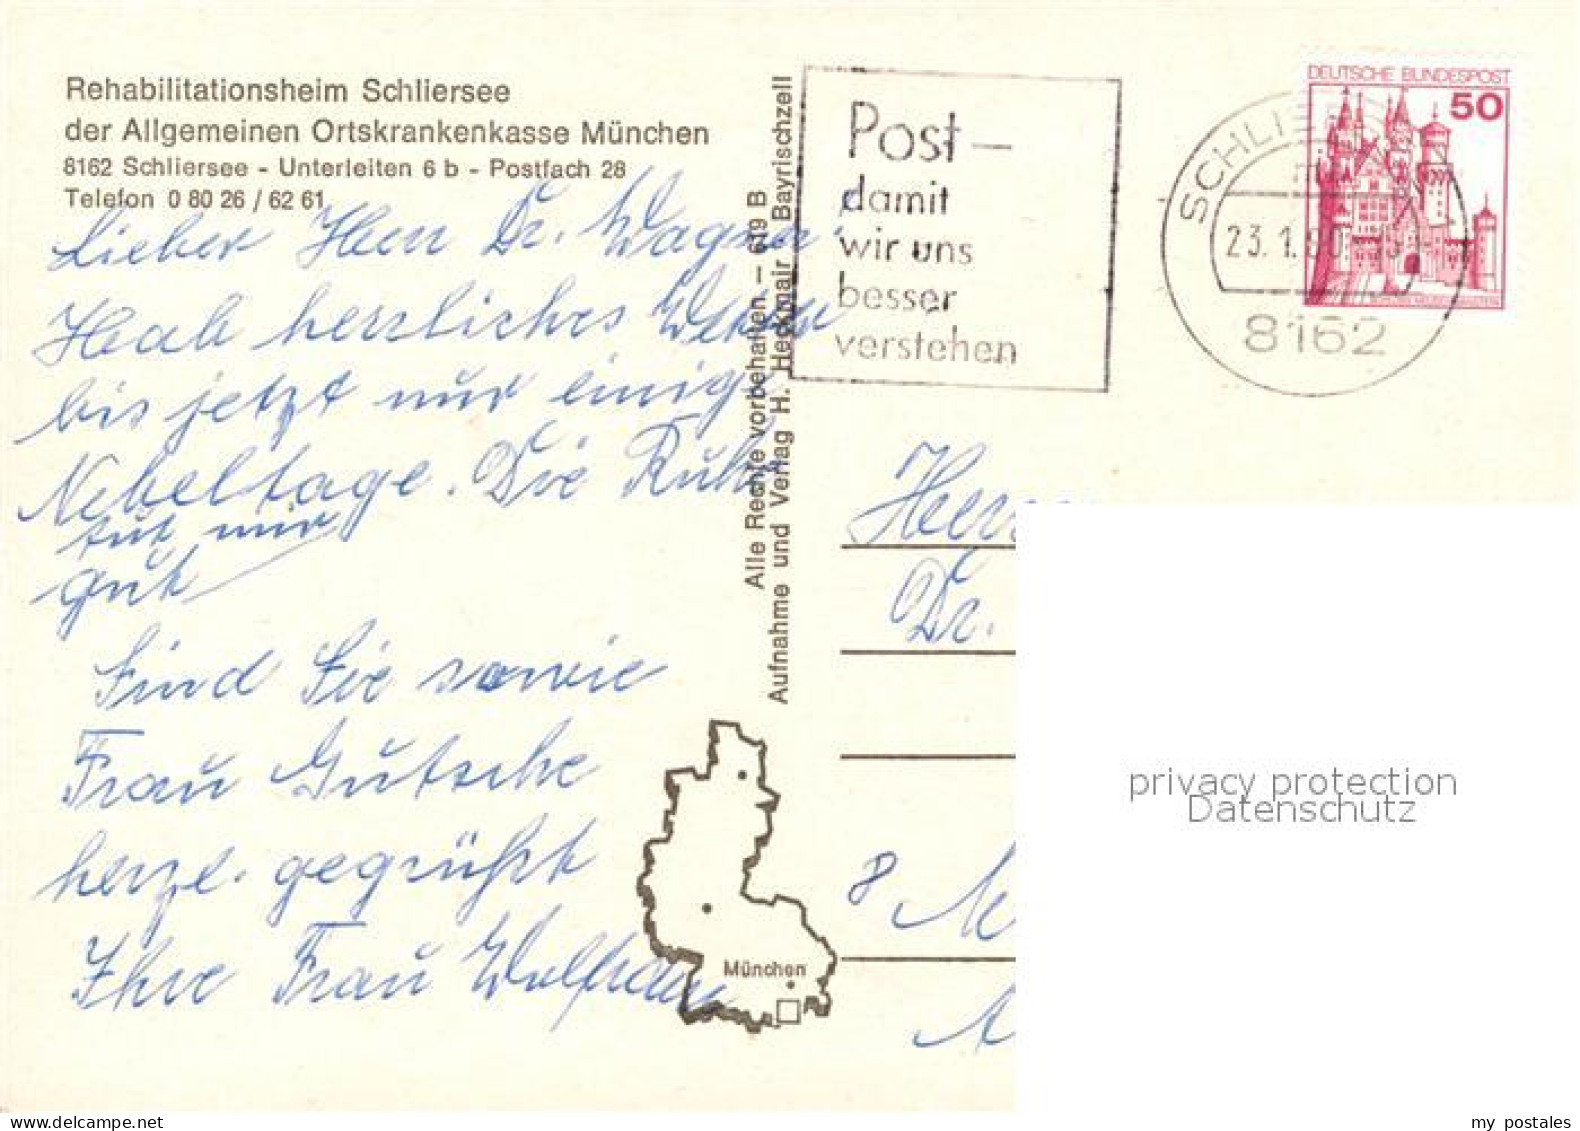 Rehabilitationsheim Schliersee
der Allgemeinen Ortskrankenkasse München
8162 Schliersee - Unterleiten 6 b - Postfach 28
Telefon 0 80 26 / 62 61
Lieber Herr Dr. Wagner
Hab herrliches Wetter
bis jetzt nur einige
Nebeltage. Die Ruhe
tut mir
gut
Sind Sie sowie
Frau Gutsche
herzl. gegrüßt
Ihre Frau
Alle Rechte vorbehalten – 619 B
Aufnahme und Verlag H. Heckmair Bayrischzell
München
Post –
damit
wir uns
besser
verstehen
SCHLI
23.1.80
8162
DEUTSCHE BUNDESPOST
50
Herr
Dr.
8 M
privacy protection
Datenschutz
my postales